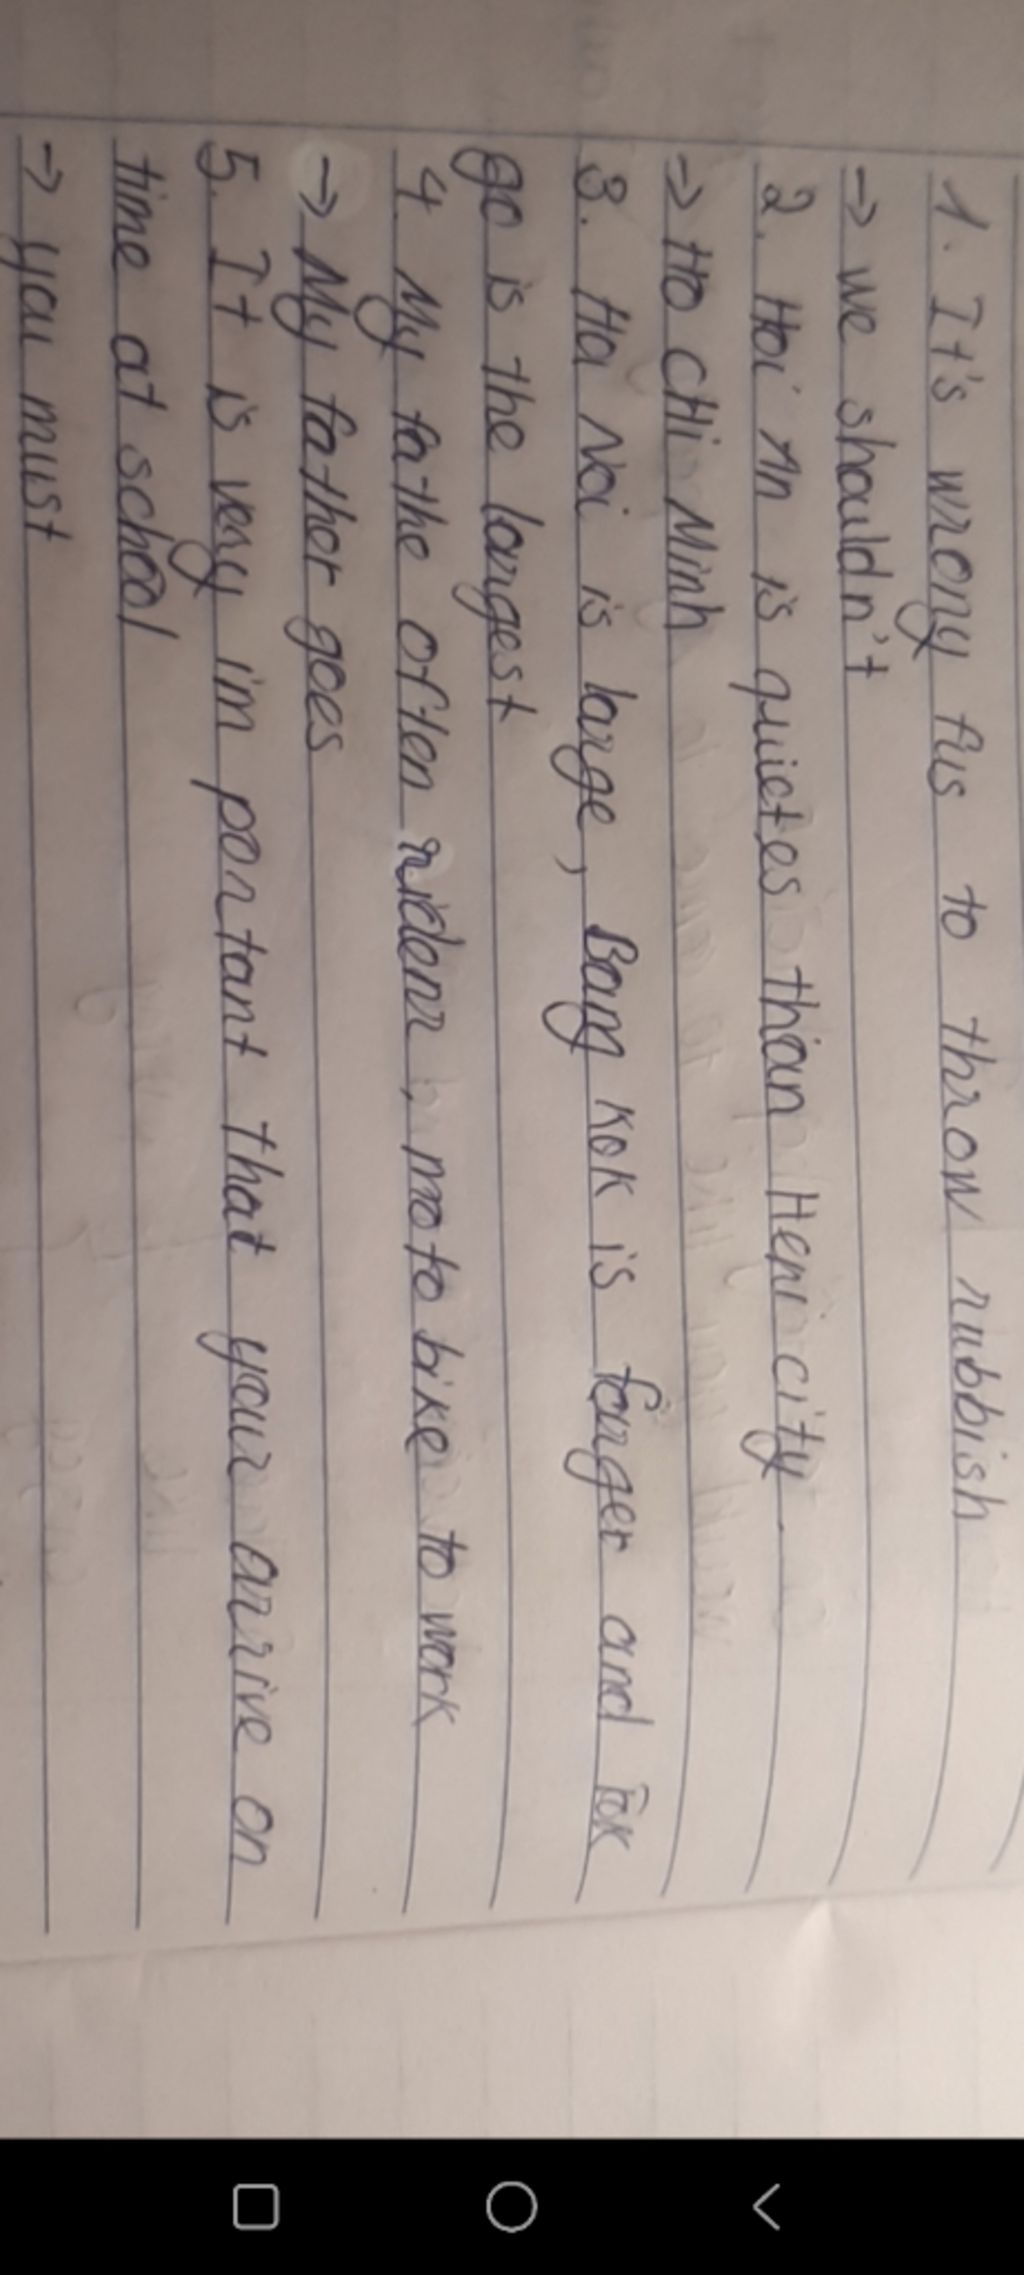 1. It's wrony fus to throw rubbish
→ we shouldn't
2. Hoi An is quietes than Hem city
→ Ho CHi Minh
3. Ha Noi is large, Bang kok is farger and Tok
go is the largest
4. My fathe often riderr, moto bike to work
→ My father goes
5. It is very im portant that your arrive on
time at school
→ you must